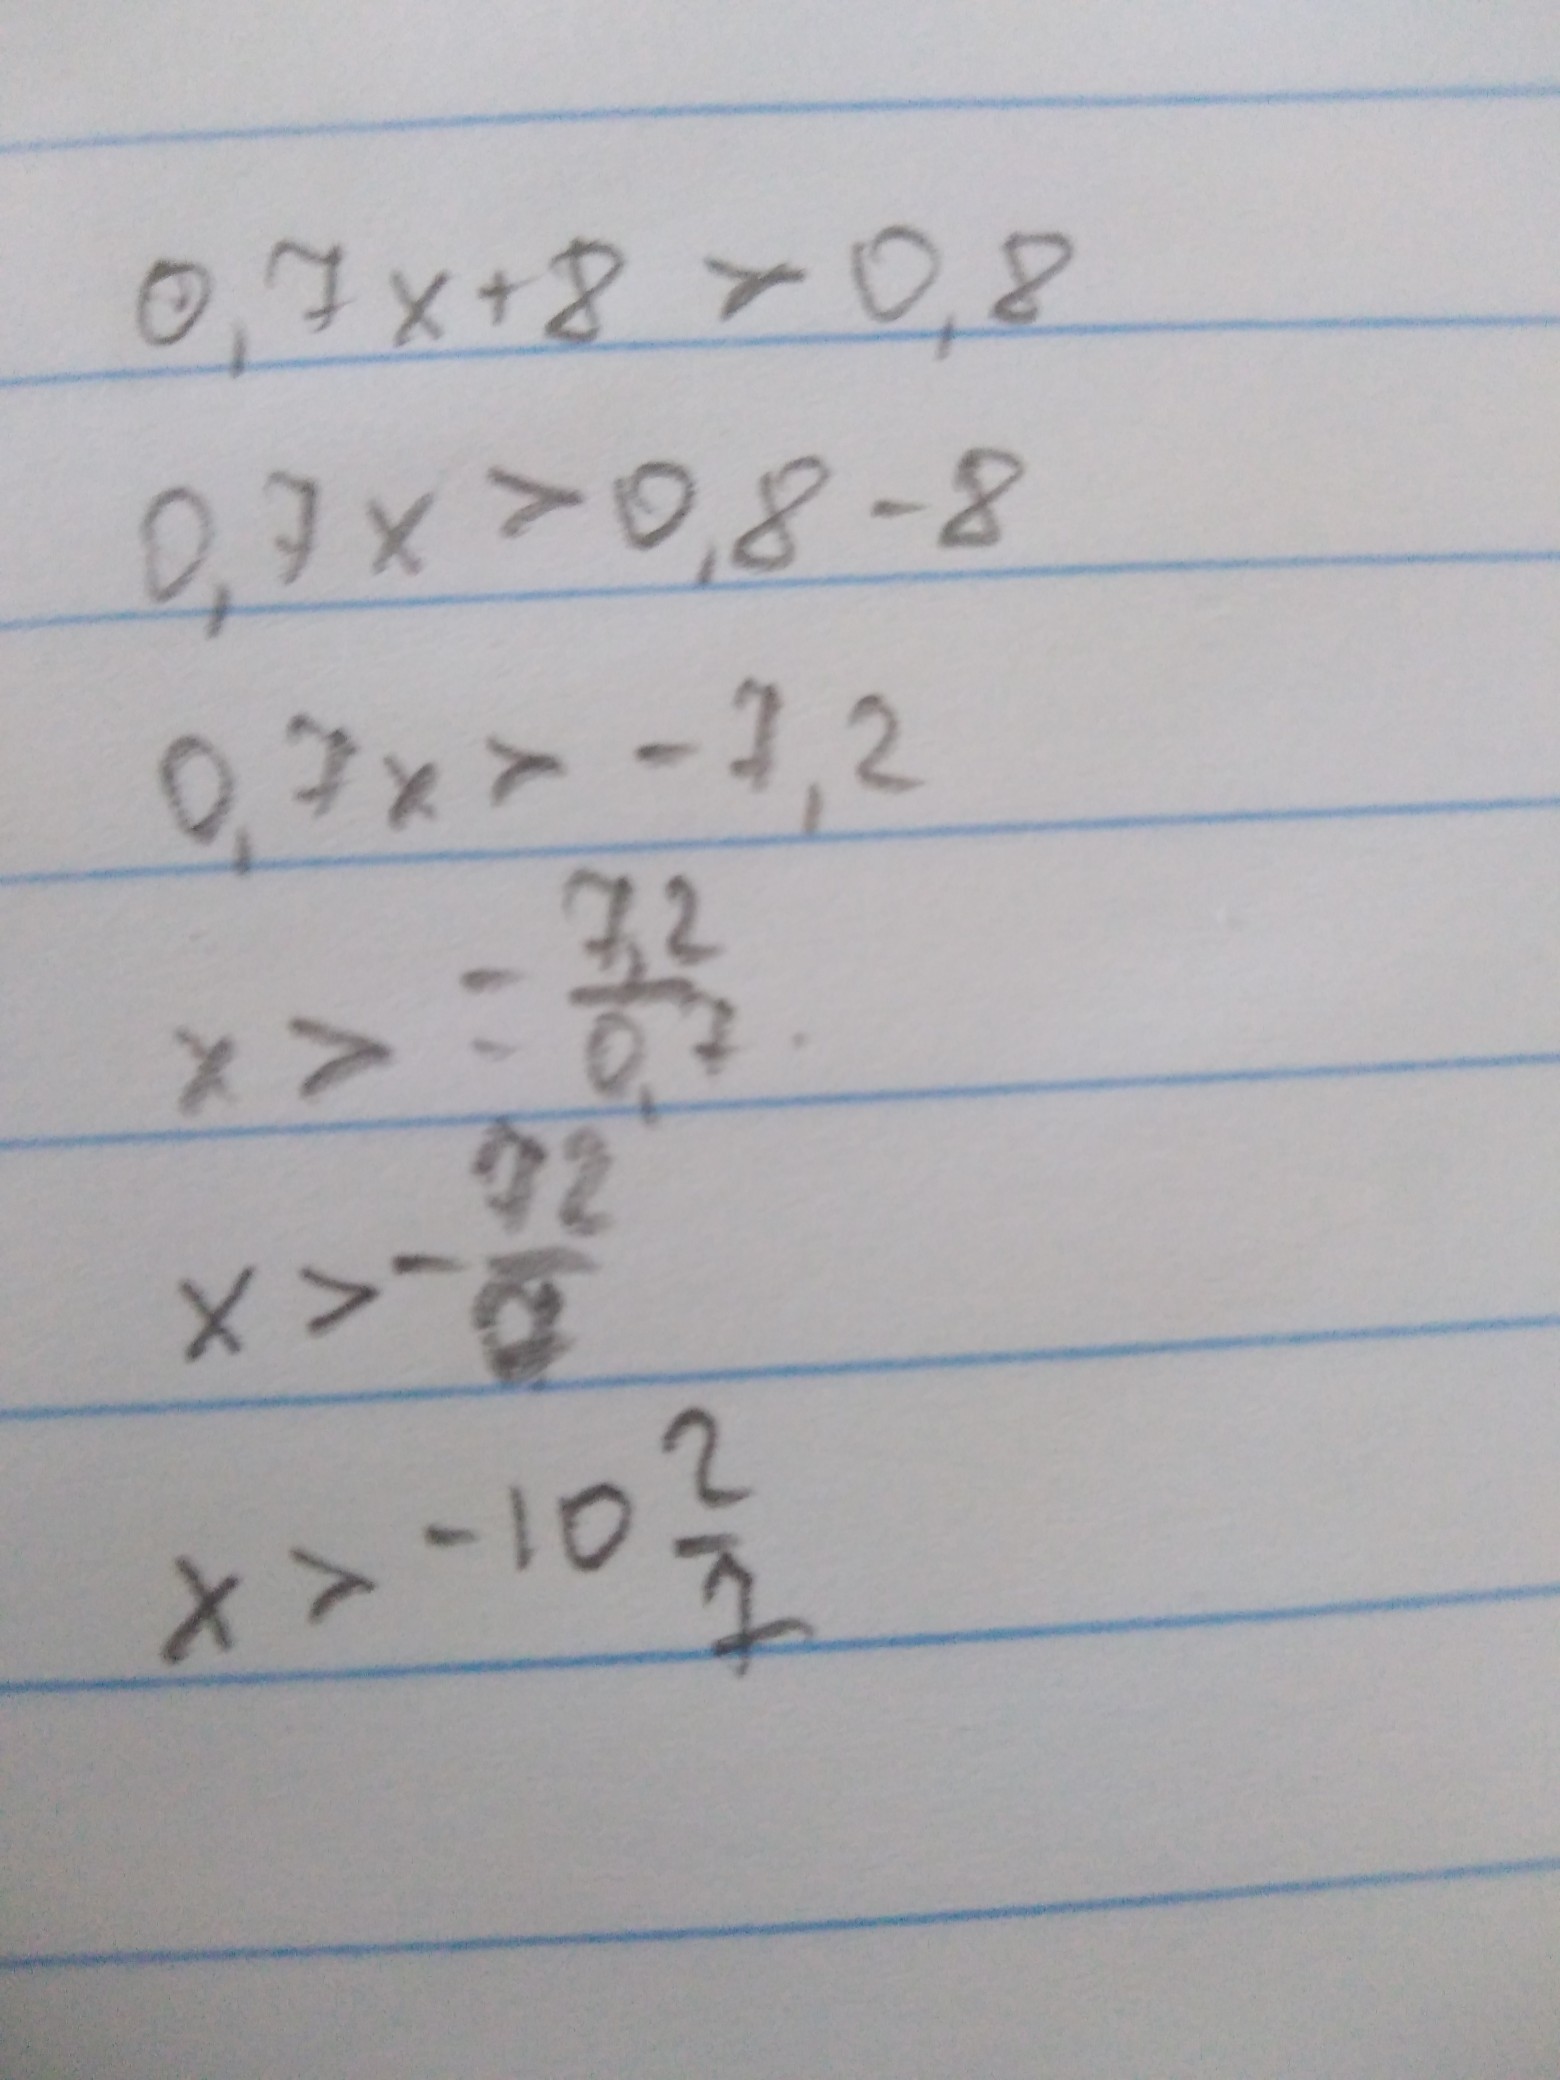 0,7x+8 > 0,8
0,7x > 0,8 - 8
0,7x > -7,2
x > - 7,2/0,7
x > - 72/
x > -10 2/7